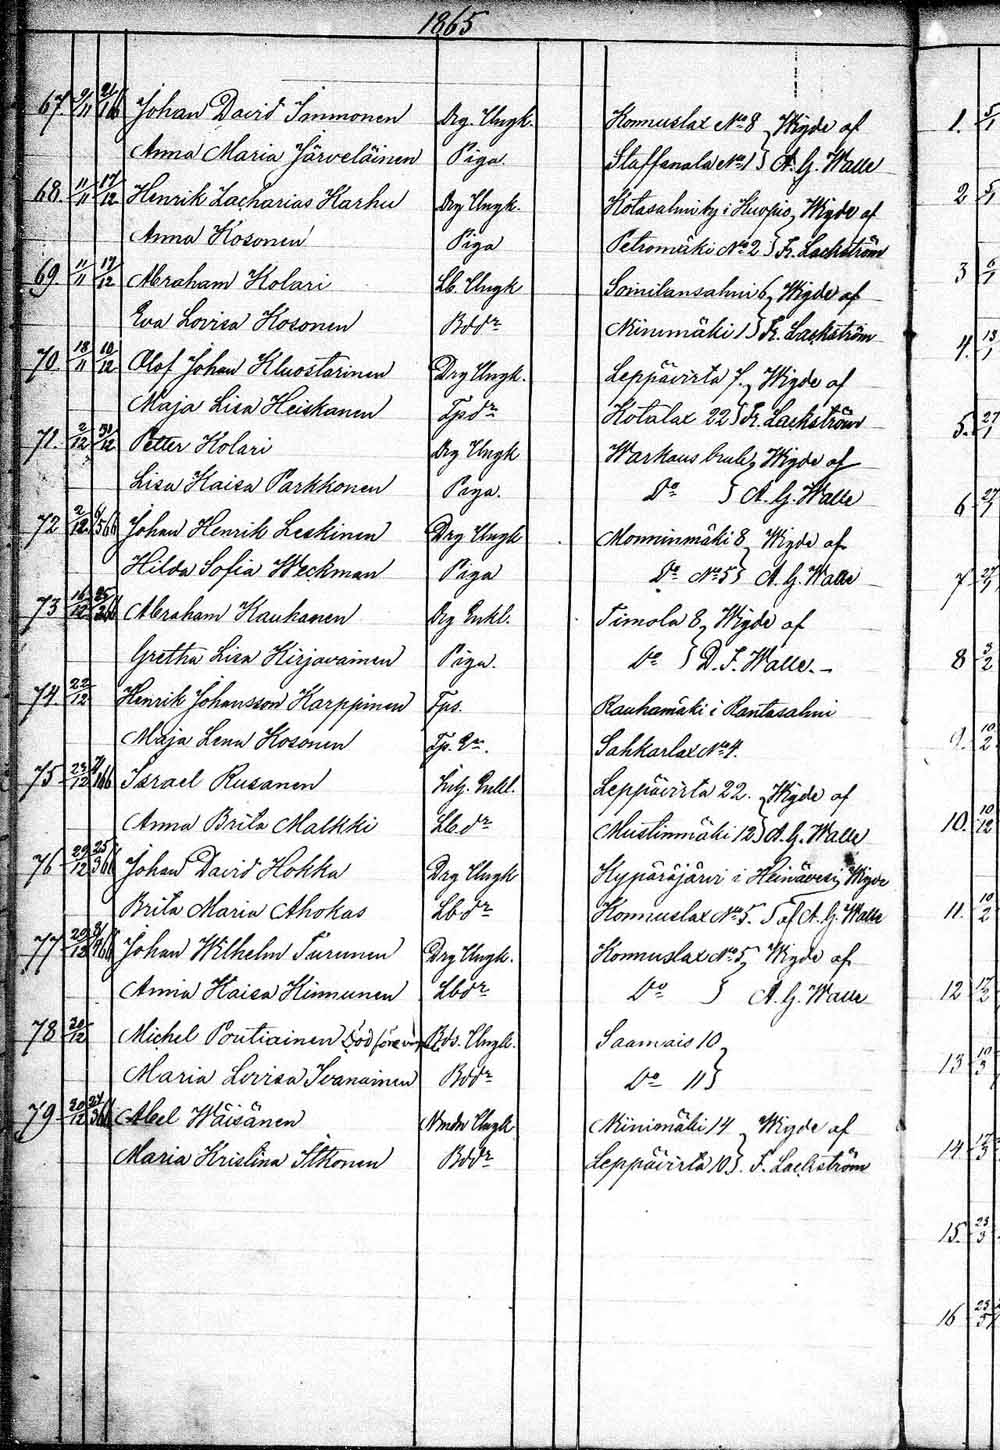 1865
67. 9/11 21/1 66 Johan David Immonen Drg. Ungk. Konnuslax No 8 } Wigde af
Anna Maria Järveläinen Piga Staffanala No 1 } A. G. Walle
68. 11/11 17/12 Henrik Zacharias Karhu Drg Ungk. Kotasalmi by i Kuopio } Wigde af
Anna Kosonen Piga Petromäki No 2 } Fr. Lackström
69. 11/11 17/12 Abraham Kolari Lb. Ungk Soinilansalmi 6 } Wigde af
Eva Lovisa Kosonen Bddr Niinimäki 1 } Fr. Lackström
70. 18/11 10/12 Olof Johan Kluostarinen Drg Ungk. Leppävirta 7. } Wigde af
Maja Lisa Heiskanen Tpdr Kotalax 22 } Fr. Lackström
71. 2/12 31/12 Petter Kolari Drg Ungk Warkaus bruk } Wigde af
Lisa Kaisa Parkkonen Piga. Do } A. G. Walle
72 2/12 66 Johan Henrik Leskinen Drg Ungk Monninmäki 8 } Wigde af
Hilda Sofia Weckman Piga Do No 5 } A. G. Walle
73 16/12 25/2 66 Abraham Kauhanen Drg Enkl. Timola 8 } Wigde af
Gretha Lisa Kirjavainen Piga. Do } D. F. Walle. –
74 22/12 Henrik Johansson Karppinen Tps. Rauhamäki i Rantasalmi
Maja Lena Kosonen Tp. Sahkarlax No 4.
75 23/12 66 Israel Rusanen Enkl. Leppävirta 22. } Wigde af
Anna Brita Malkki Lbdr Mustinmäki 12 } A. G. Walle
76 29/12 25/3 66 Johan David Hokka Drg Ungk Kypäräjärvi i Heinävesi } Wigde
Brita Maria Ahokas Lbdr Konnuslax No 5. } af A. G. Walle
77 66 Johan Wilhelm Turunen Drg Ungk. Konnuslax No 5 } Wigde af
Anna Kaisa Kinnunen Lbdr Do } A. G. Walle
78 30/12 Michel Poutiainen Död före Bds. Ungk. Saamais 10 }
Maria Lovisa Ivanainen Bddr Do 11 }
79 30/12 66 Abel Wäisänen Ungk Niinimäki 14 } Wigde af
Maria Kristina Itkonen Bddr Leppävirta 10 } F. Lackström
1. 5/1
2 5/1
3 6/1
4. 13/1
5. 27/1
6 27/1
7. 27/1
8 3/2
9. 10/2
10. 10/12
11. 10/2
12 17/2
13 10/3
14 17/3
15. 23/3
16 23/3